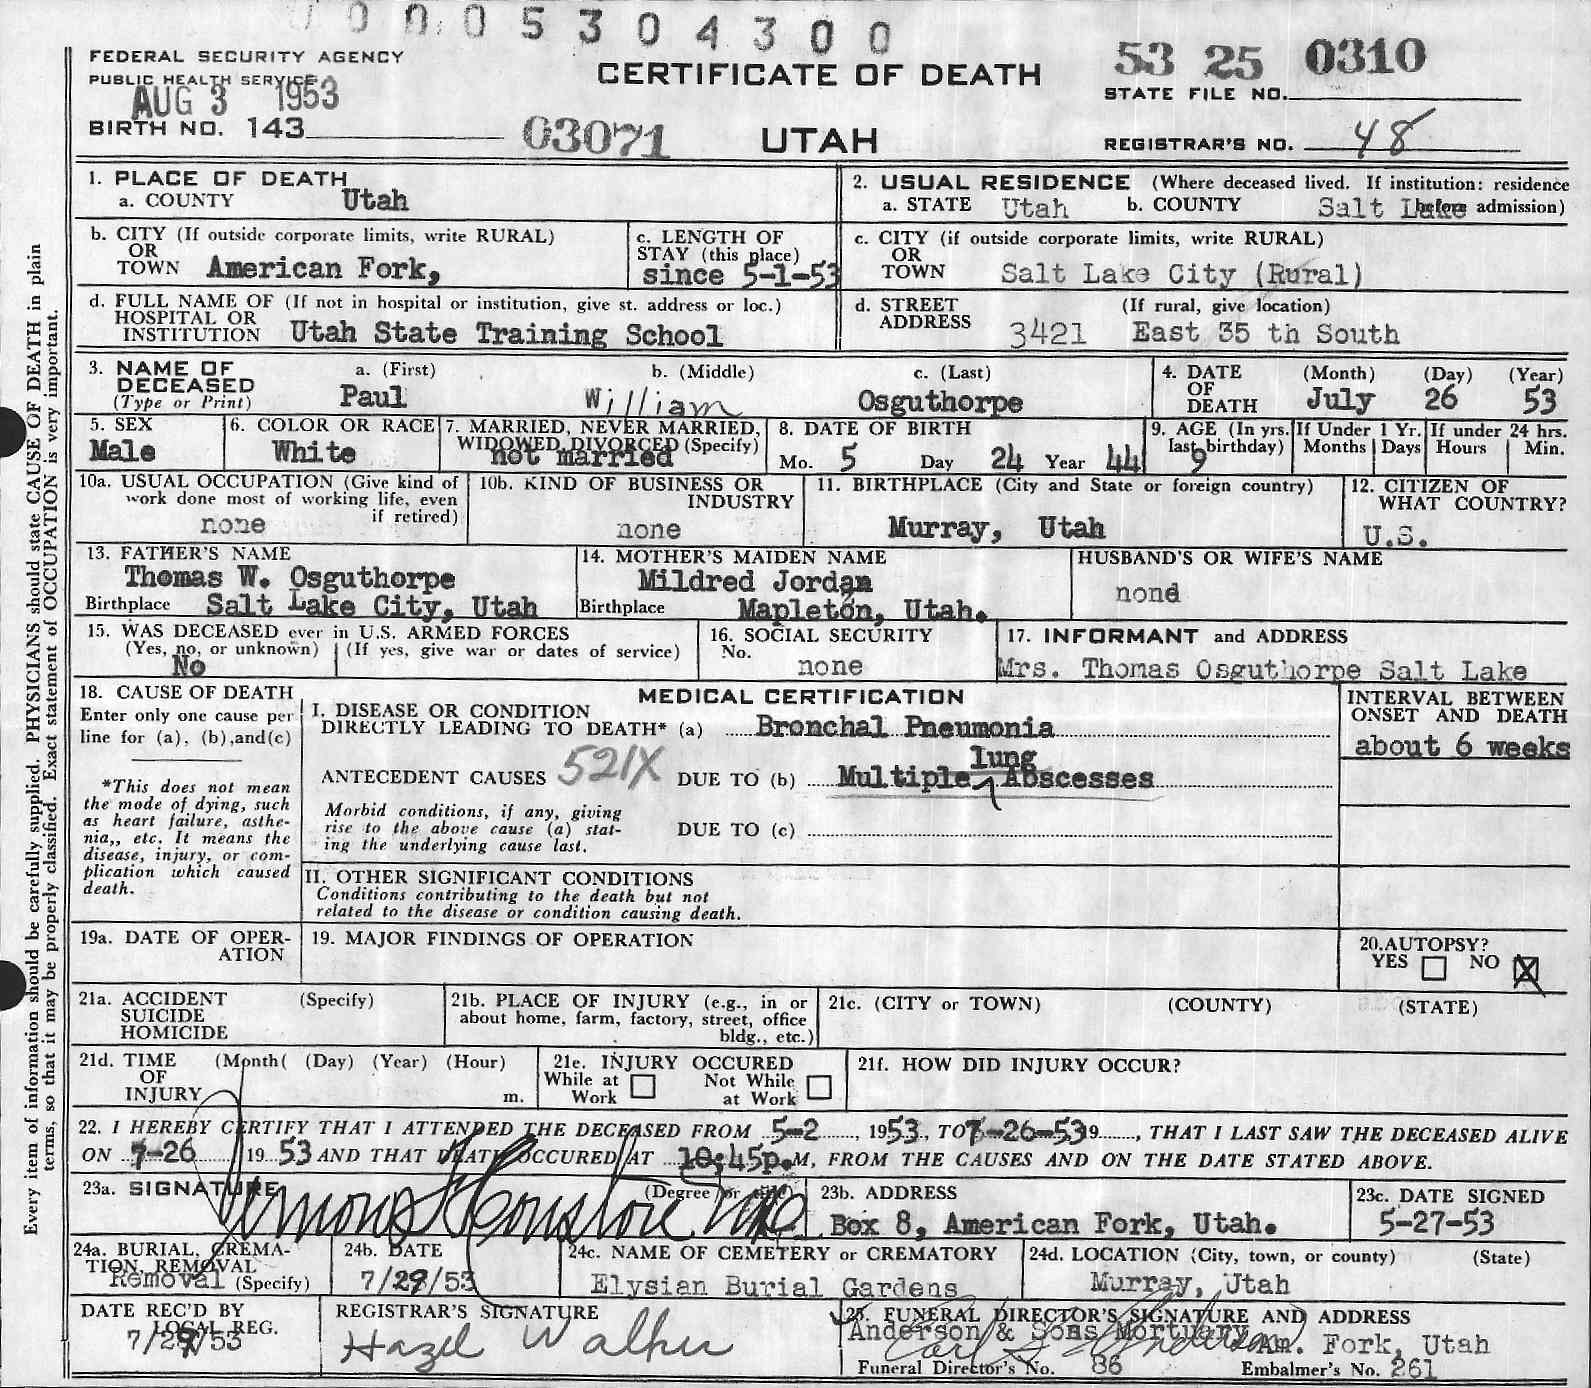 0 0 0 5 3 0 4 3 0 0
FEDERAL SECURITY AGENCY
PUBLIC HEALTH SERVICE
AUG 3 1953
BIRTH NO. 143
03071
CERTIFICATE OF DEATH
UTAH
53 25 0310
STATE FILE NO.
REGISTRAR'S NO. 48
Every item of information should be carefully supplied. PHYSICIANS should state CAUSE OF DEATH in plain
terms, so that it may be properly classified. Exact statement of OCCUPATION is very important.
1. PLACE OF DEATH
a. COUNTY Utah
2. USUAL RESIDENCE (Where deceased lived. If institution: residence
before admission)
a. STATE Utah b. COUNTY Salt Lake
b. CITY (If outside corporate limits, write RURAL)
OR
TOWN American Fork,
c. LENGTH OF
STAY (this place)
since 5-1-53
c. CITY (if outside corporate limits, write RURAL)
OR
TOWN Salt Lake City (Rural)
d. FULL NAME OF (If not in hospital or institution, give st. address or loc.)
HOSPITAL OR
INSTITUTION Utah State Training School
d. STREET (If rural, give location)
ADDRESS 3421 East 35 th South
3. NAME OF
DECEASED
(Type or Print)
a. (First) b. (Middle) c. (Last)
Paul William Osguthorpe
4. DATE
OF
DEATH
(Month) (Day) (Year)
July 26 53
5. SEX
Male
6. COLOR OR RACE
White
7. MARRIED, NEVER MARRIED,
WIDOWED, DIVORCED (Specify)
not married
8. DATE OF BIRTH
Mo. 5 Day 24 Year 44
9. AGE (In yrs.
last birthday)
9
If Under 1 Yr.
Months Days
If under 24 hrs.
Hours Min.
10a. USUAL OCCUPATION (Give kind of
work done most of working life, even
if retired)
none
10b. KIND OF BUSINESS OR
INDUSTRY
none
11. BIRTHPLACE (City and State or foreign country)
Murray, Utah
12. CITIZEN OF
WHAT COUNTRY?
U.S.
13. FATHER'S NAME
Thomas W. Osguthorpe
Birthplace Salt Lake City, Utah
14. MOTHER'S MAIDEN NAME
Mildred Jordan
Birthplace Mapleton, Utah.
HUSBAND'S OR WIFE'S NAME
none
15. WAS DECEASED ever in U.S. ARMED FORCES
(Yes, no, or unknown) (If yes, give war or dates of service)
No
16. SOCIAL SECURITY
No.
none
17. INFORMANT and ADDRESS
Mrs. Thomas Osguthorpe Salt Lake
18. CAUSE OF DEATH
Enter only one cause per
line for (a), (b),and(c)
*This does not mean
the mode of dying, such
as heart failure, asthe-
nia,, etc. It means the
disease, injury, or com-
plication which caused
death.
MEDICAL CERTIFICATION
I. DISEASE OR CONDITION
DIRECTLY LEADING TO DEATH* (a) Bronchal Pneumonia
ANTECEDENT CAUSES 521X DUE TO (b) Multiple lung Abscesses
Morbid conditions, if any, giving
rise to the above cause (a) stat-
ing the underlying cause last.
DUE TO (c)
INTERVAL BETWEEN
ONSET AND DEATH
about 6 weeks
II. OTHER SIGNIFICANT CONDITIONS
Conditions contributing to the death but not
related to the disease or condition causing death.
19a. DATE OF OPER-
ATION
19. MAJOR FINDINGS OF OPERATION
20.AUTOPSY?
YES NO X
21a. ACCIDENT (Specify)
SUICIDE
HOMICIDE
21b. PLACE OF INJURY (e.g., in or
about home, farm, factory, street, office
bldg., etc.)
21c. (CITY or TOWN) (COUNTY) (STATE)
21d. TIME (Month( (Day) (Year) (Hour)
OF
INJURY m.
21e. INJURY OCCURED
While at Work Not While at Work
21f. HOW DID INJURY OCCUR?
22. I HEREBY CERTIFY THAT I ATTENDED THE DECEASED FROM 5-2, 1953, TO 7-26-53 9, THAT I LAST SAW THE DECEASED ALIVE
ON 7-26 19 53 AND THAT DEATH OCCURED AT 10:45p.M, FROM THE CAUSES AND ON THE DATE STATED ABOVE.
23a. SIGNATURE (Degree or title)
23b. ADDRESS
Box 8, American Fork, Utah.
23c. DATE SIGNED
5-27-53
24a. BURIAL, CREMA-
TION, REMOVAL
Removal (Specify)
24b. DATE
7/29/53
24c. NAME OF CEMETERY or CREMATORY
Elysian Burial Gardens
24d. LOCATION (City, town, or county) (State)
Murray, Utah
DATE REC'D BY
LOCAL REG.
7/29/53
REGISTRAR'S SIGNATURE
Hazel Walker
25. FUNERAL DIRECTOR'S SIGNATURE AND ADDRESS
Anderson & Sons Mortuary Am. Fork, Utah
Funeral Director's No. 86 Embalmer's No. 261